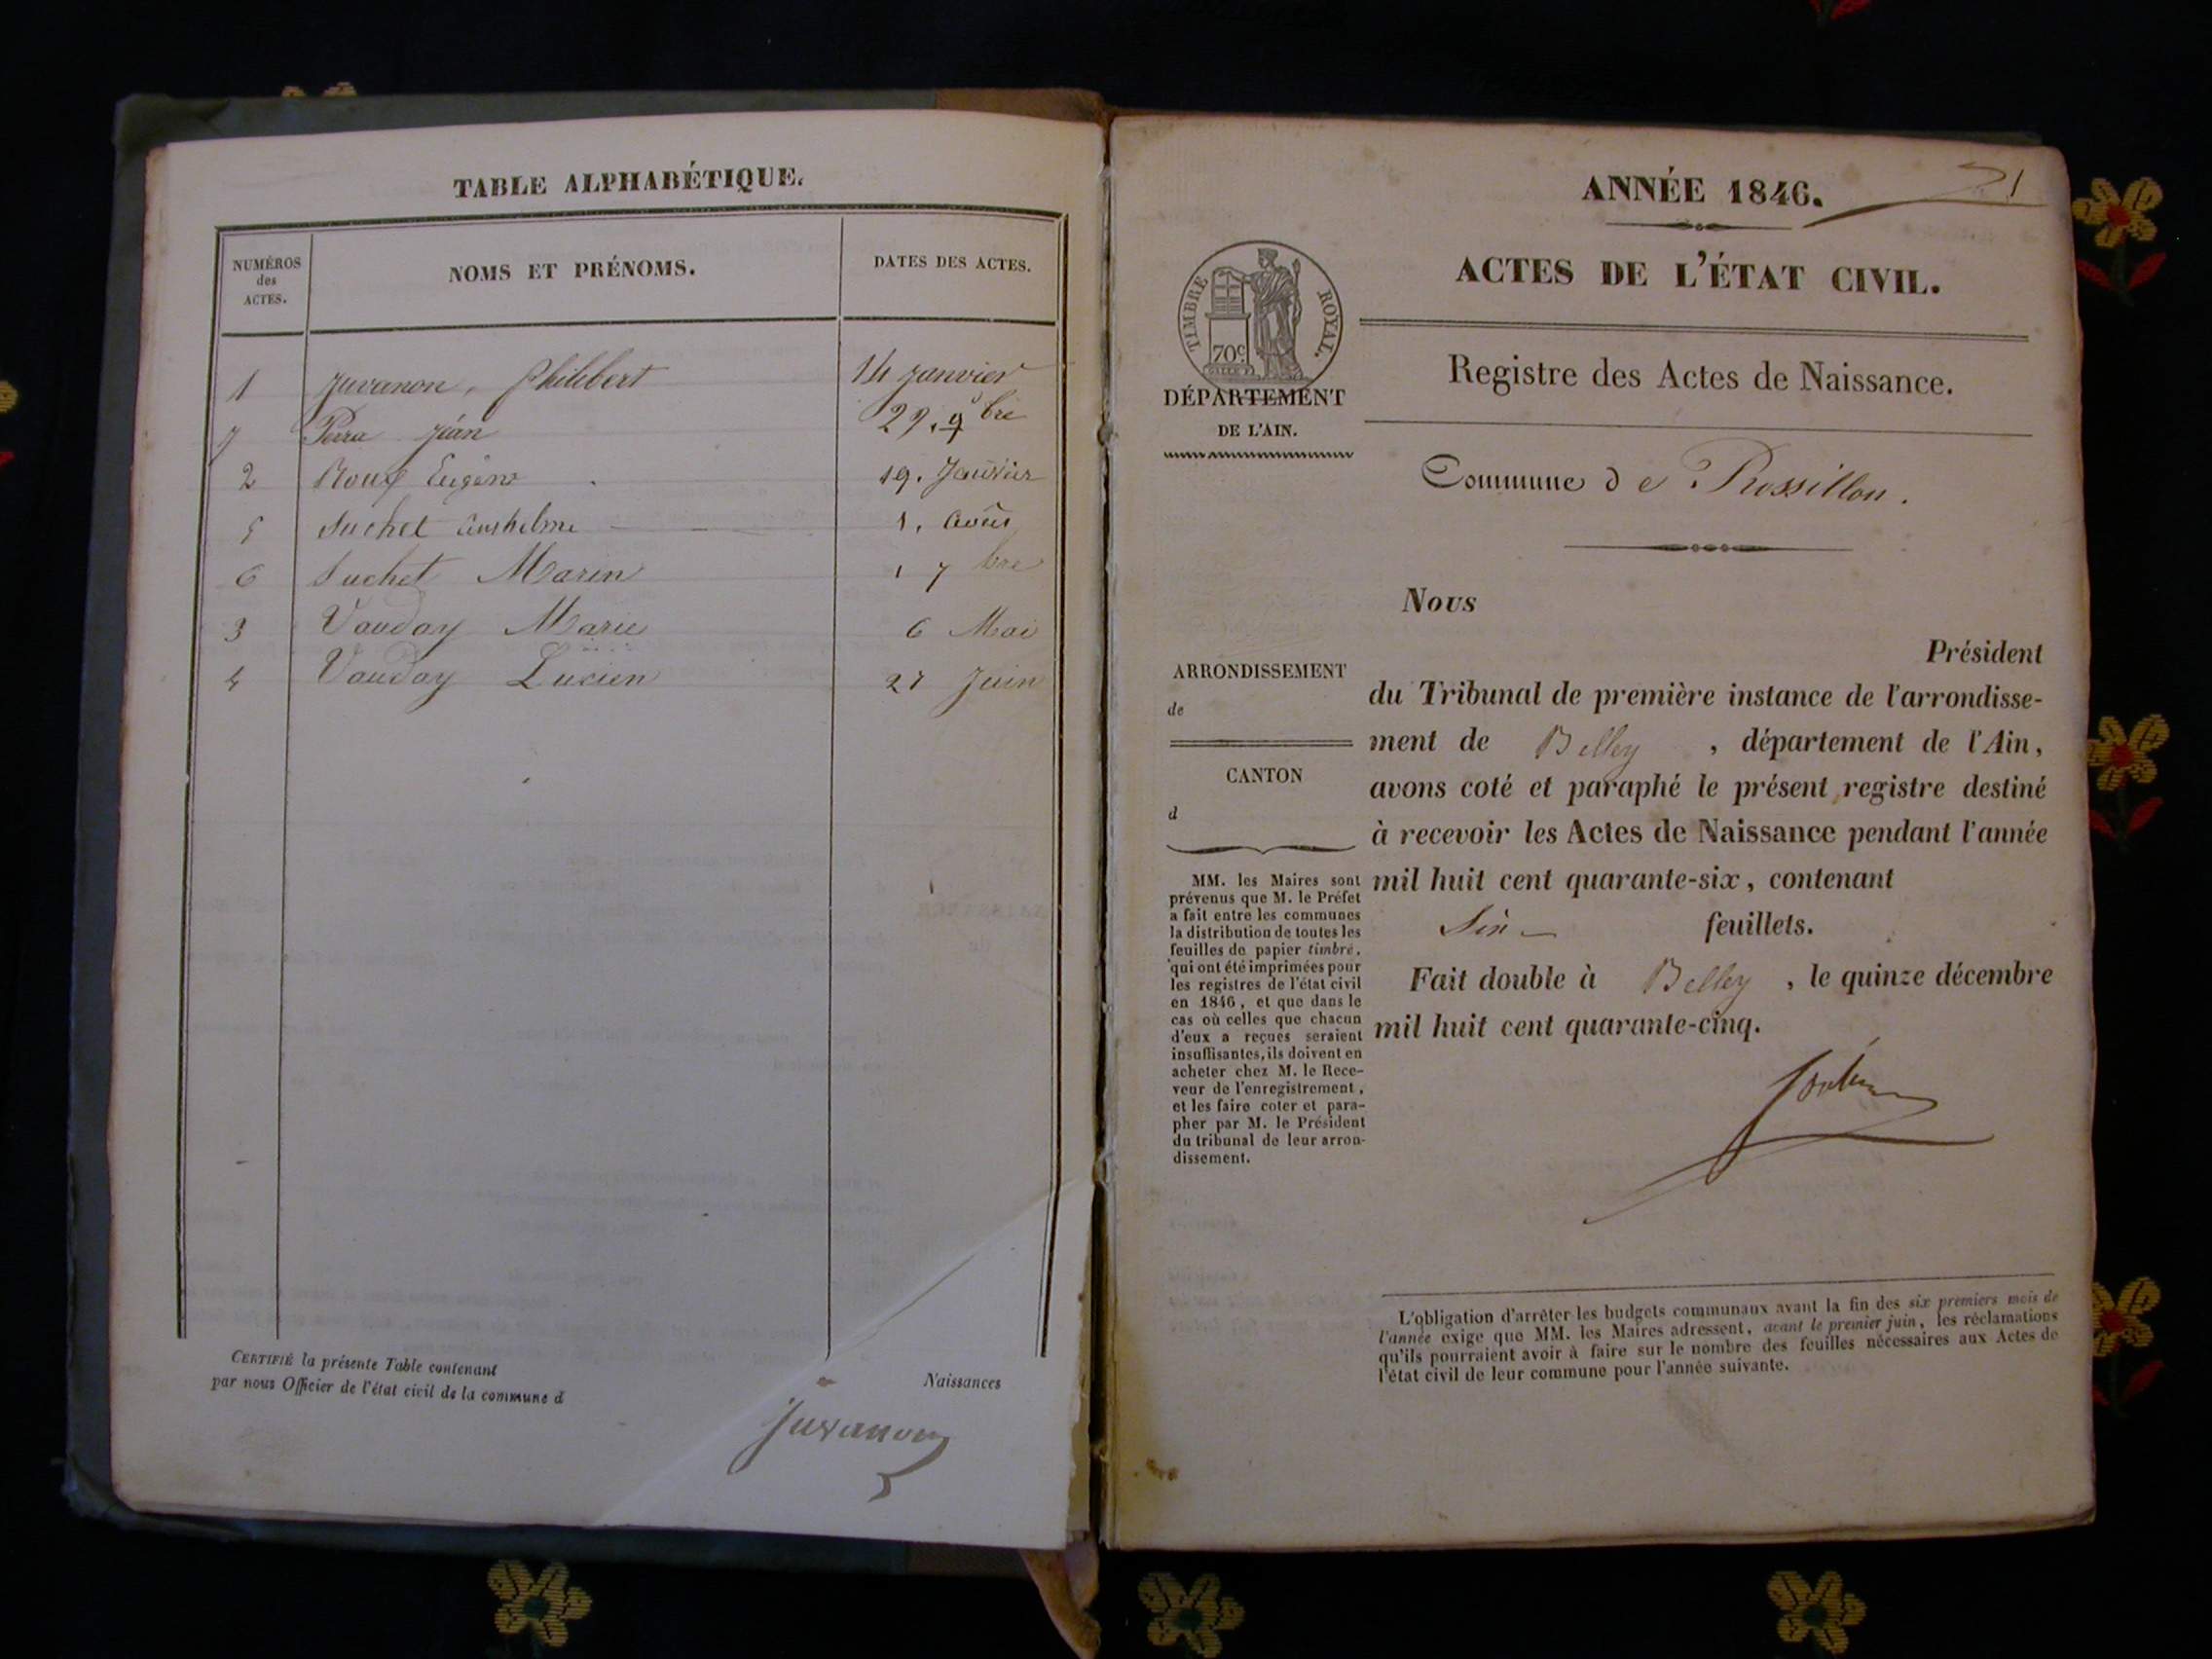 TABLE ALPHABÉTIQUE.
NUMÉROS
des
ACTES.
NOMS ET PRÉNOMS.
DATES DES ACTES.
1 Juvanon, Philibert 14 Janvier
7 Perra Jean 29. 9bre
2 Roux Eugène 19. Janvier
5 Suchet Anthelme 1. Août
6 Suchet Marin 1 7bre
3 Vauday Marie 6 Mai
4 Vauday Lucien 27 Juin
CERTIFIÉ la présente Table contenant Naissances
par nous Officier de l'état civil de la commune d
Juvanon
ANNÉE 1846.
1
ACTES DE L'ÉTAT CIVIL.
TIMBRE ROYAL.
70c.
DÉPARTEMENT
DE L'AIN.
Registre des Actes de Naissance.
Commune de Rossillon.
Nous
Président
du Tribunal de première instance de l'arrondisse-
ment de Belley, département de l'Ain,
avons coté et paraphé le présent registre destiné
à recevoir les Actes de Naissance pendant l'année
mil huit cent quarante-six, contenant
Six feuillets.
Fait double à Belley, le quinze décembre
mil huit cent quarante-cinq.
ARRONDISSEMENT
de
CANTON
d
MM. les Maires sont
prévenus que M. le Préfet
a fait entre les communes
la distribution de toutes les
feuilles de papier timbré,
qui ont été imprimées pour
les registres de l'état civil
en 1846, et que dans le
cas où celles que chacun
d'eux a reçues seraient
insuffisantes, ils doivent en
acheter chez M. le Rece-
veur de l'enregistrement,
et les faire coter et para-
pher par M. le Président
du tribunal de leur arron-
dissement.
L'obligation d'arrêter les budgets communaux avant la fin des six premiers mois de
l'année exige que MM. les Maires adressent, avant le premier juin, les réclamations
qu'ils pourraient avoir à faire sur le nombre des feuilles nécessaires aux Actes de
l'état civil de leur commune pour l'année suivante.